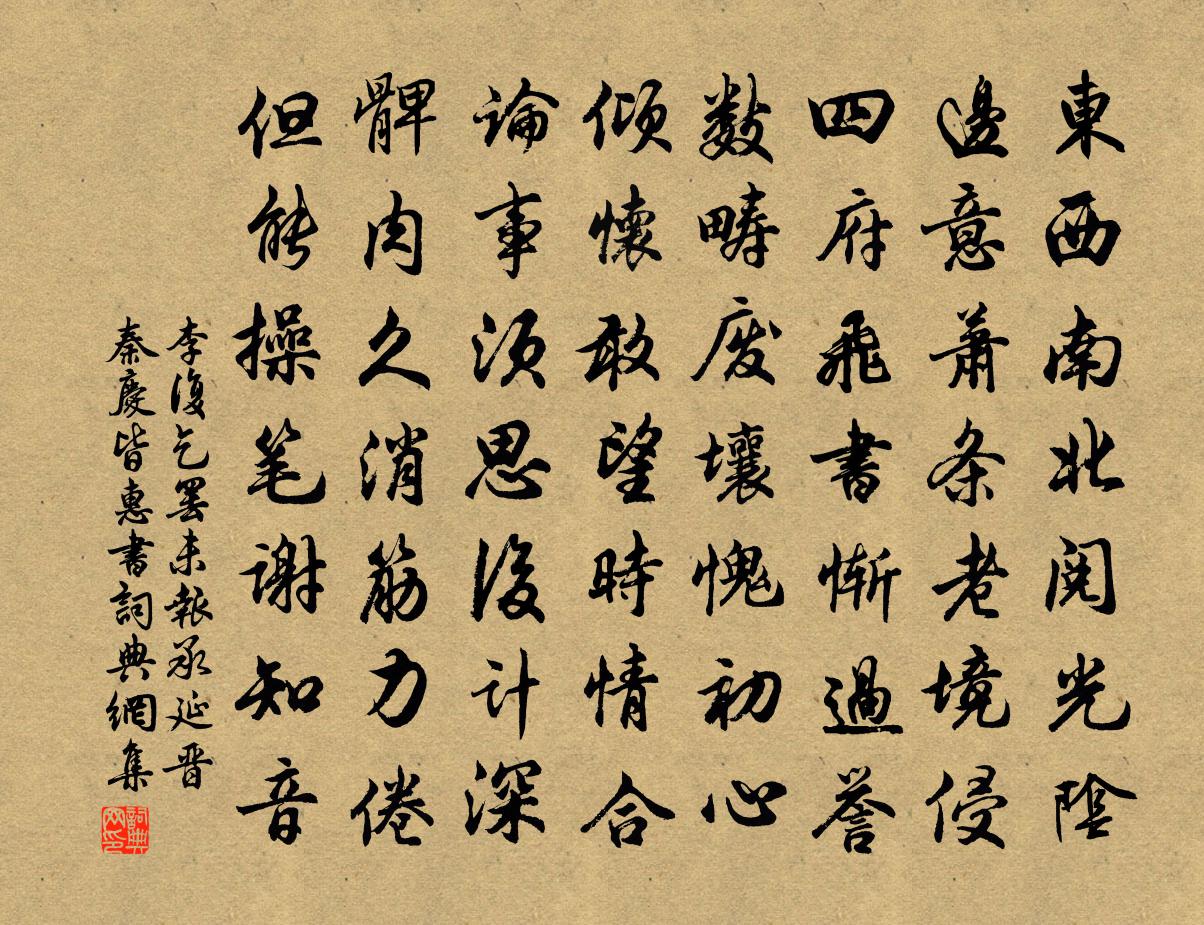 東西南北閱光陰
邊意蕭条老境侵
四府飛書慚過譽
數疇廢壞愧初心
傾懷敢望時情合
論事須思後計深
髀肉久消筋力倦
但能操笔謝知音
李復乞罷未報承延晋
秦慶皆惠書詞典網集
詞典网印